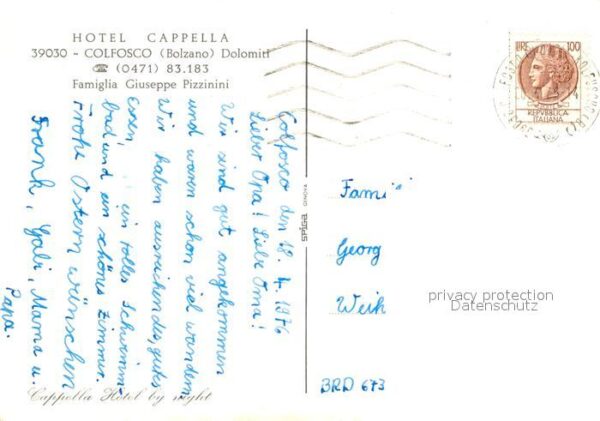 HOTEL CAPPELLA
39030 - COLFOSCO (Bolzano) Dolomiti
☎ (0471) 83.183
Famiglia Giuseppe Pizzinini
Colfosco den 18. 4. 1976
Lieber Opa! Liebe Oma!
Wir sind gut angekommen
und waren schon viel wandern
Wir haben ausreichendes, gutes
Essen, ein tolles Schwimm-
bad und ein schönes Zimmer.
Frohe Ostern wünschen
Frank, Gabi, Mama u.
Papa.
Cappella Hotel by night
SPIGA GENOVA
LIRE 100
REPVBBLICA
ITALIANA
Fami
Georg
Weih
BRD 673
privacy protection
Datenschutz